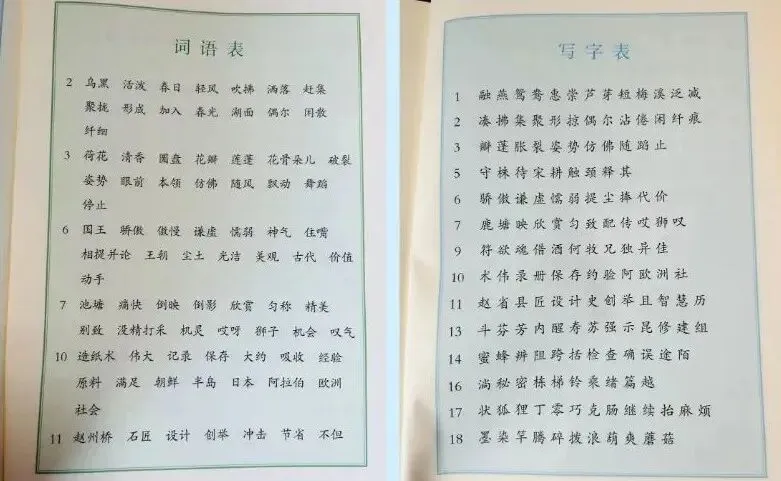 词语表
2 乌黑 活泼 春日 轻风 吹拂 洒落 赶集
聚拢 形成 加入 春光 湖面 偶尔 闲散
纤细
3 荷花 清香 圆盘 花瓣 莲蓬 花骨朵儿 破裂
姿势 眼前 本领 仿佛 随风 飘动 舞蹈
停止
6 国王 骄傲 傲慢 谦虚 懦弱 神气 住嘴
相提并论 王朝 尘土 光洁 美观 古代 价值
动手
7 池塘 痛快 倒映 倒影 欣赏 匀称 精美
别致 没精打采 机灵 哎呀 狮子 机会 叹气
10 造纸术 伟大 记录 保存 大约 吸收 经验
原料 满足 朝鲜 半岛 日本 阿拉伯 欧洲
社会
11 赵州桥 石匠 设计 创举 冲击 节省 不但
写字表
1 融燕鸳鸯惠崇芦芽短梅溪泛减
2 凑拂集聚形掠偶尔沾倦闲纤痕
3 瓣蓬胀裂姿势仿佛随蹈止
5 守株待宋耕触颈释其
6 骄傲谦虚懦弱提尘捧代价
7 鹿塘映欣赏匀致配传哎狮叹
9 符欲魂借酒何牧兄独异佳
10 术伟录册保存约验阿欧洲社
11 赵省县匠设计史创举且智慧历
13 斗芬芳内醒寿苏强示昆修建组
14 蜜蜂辨阻跨括检查确误途陌
16 淌秘密栋梯铃乘绪篇越
17 状狐狸丁零巧克肠继续抬麻烦
18 墨染竿腾碎拨浪葫爽蘑菇